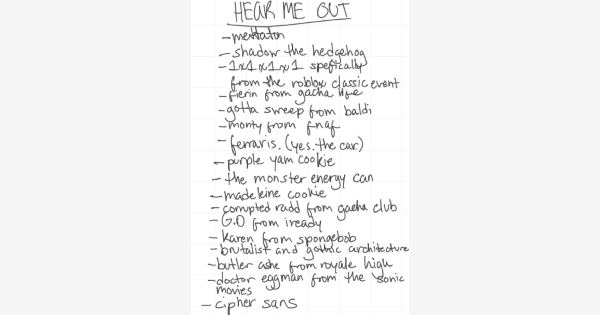 HEAR ME OUT
- mettaton
- shadow the hedgehog
- 1x1x1x1 spefically
from the roblox classic event
- fierin from gacha life
- gotta sweep from baldi
- monty from fnaf
- ferraris. (yes. the car.)
- purple yam cookie
- the monster energy can
- madeleine cookie
- corrupted radd from gacha club
- G.O from iready
- karen from spongebob
- brutalist and gothic architecture
- butler ashe from royale high
- doctor eggman from the sonic
movies
- cipher sans